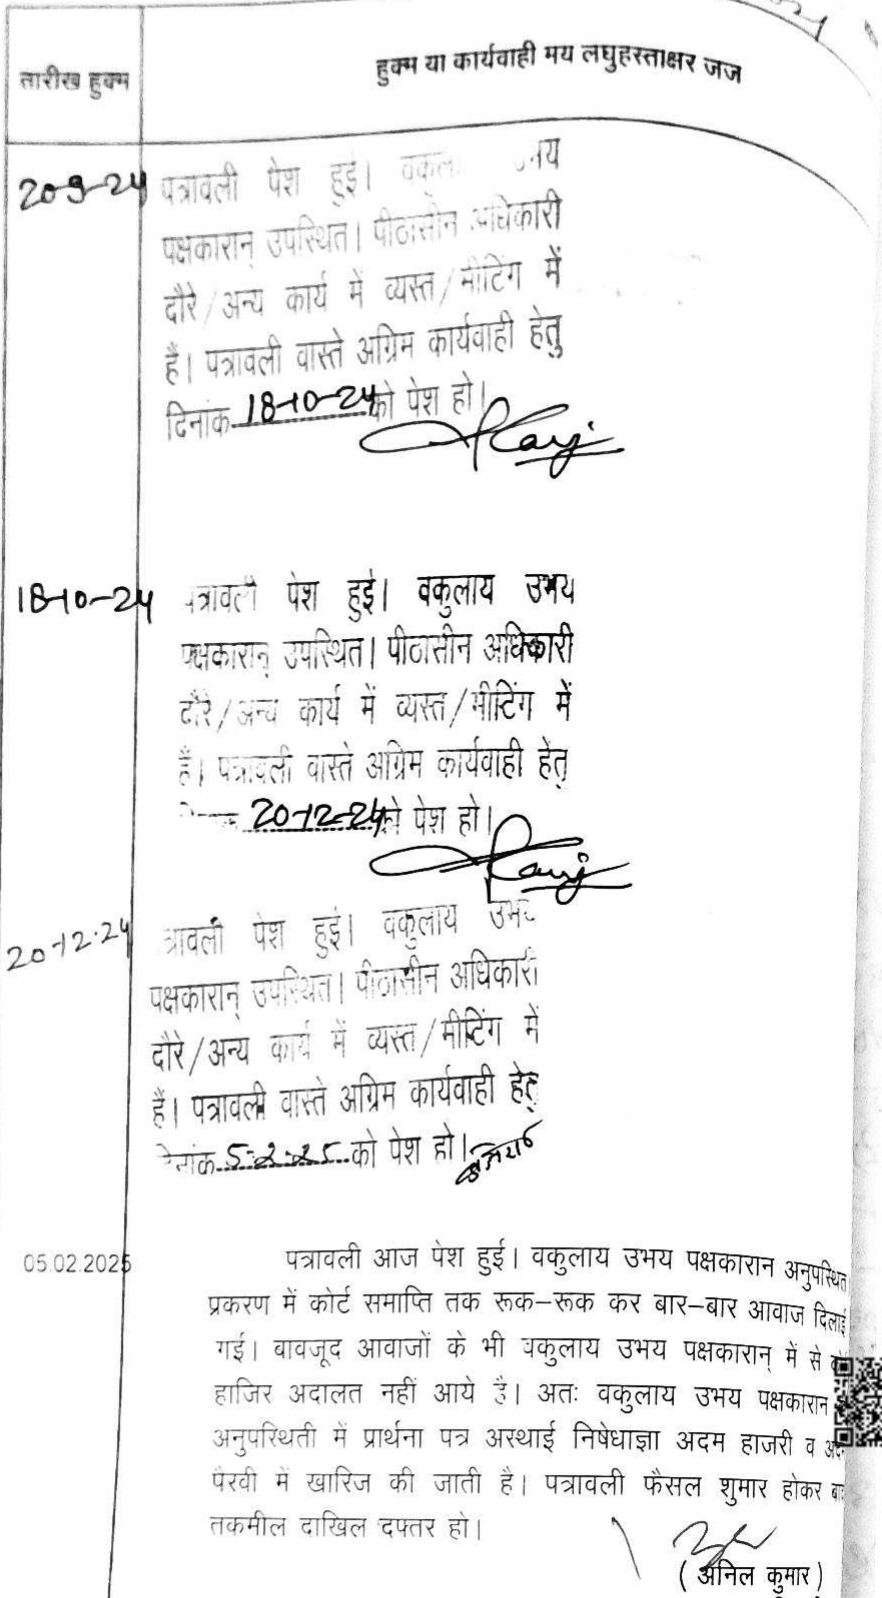 तारीख हुक्म
हुक्म या कार्यवाही मय लघुहस्ताक्षर जज
20-9-24
पत्रावली पेश हुई।
पक्षकारान् उपस्थित। पीठासीन अधिकारी
दौरे/अन्य कार्य में व्यस्त/मीटिंग में
हैं। पत्रावली वास्ते अग्रिम कार्यवाही हेतु
दिनांक 18-10-24 को पेश हो।
18-10-24
पत्रावली पेश हुई। वकुलाय उभय
पक्षकारान् उपस्थित। पीठासीन अधिकारी
दौरे/अन्य कार्य में व्यस्त/मीटिंग में
हैं। पत्रावली वास्ते अग्रिम कार्यवाही हेतु
20-12-24 को पेश हो।
20-12-24
पत्रावली पेश हुई। वकुलाय उभय
पक्षकारान् उपस्थित। पीठासीन अधिकारी
दौरे/अन्य कार्य में व्यस्त/मीटिंग में
हैं। पत्रावली वास्ते अग्रिम कार्यवाही हेतु
दिनांक 5-2-25 को पेश हो।
05.02.2025
पत्रावली आज पेश हुई। वकुलाय उभय पक्षकारान अनुपस्थित
प्रकरण में कोर्ट समाप्ति तक रूक–रूक कर बार–बार आवाज दिलाई
गई। बावजूद आवाजों के भी वकुलाय उभय पक्षकारान् में से
हाजिर अदालत नहीं आये है। अतः वकुलाय उभय पक्षकारान
अनुपस्थिती में प्रार्थना पत्र अस्थाई निषेधाज्ञा अदम हाजरी व
पैरवी में खारिज की जाती है। पत्रावली फैसल शुमार होकर
तकमील दाखिल दफ्तर हो।
(अनिल कुमार)